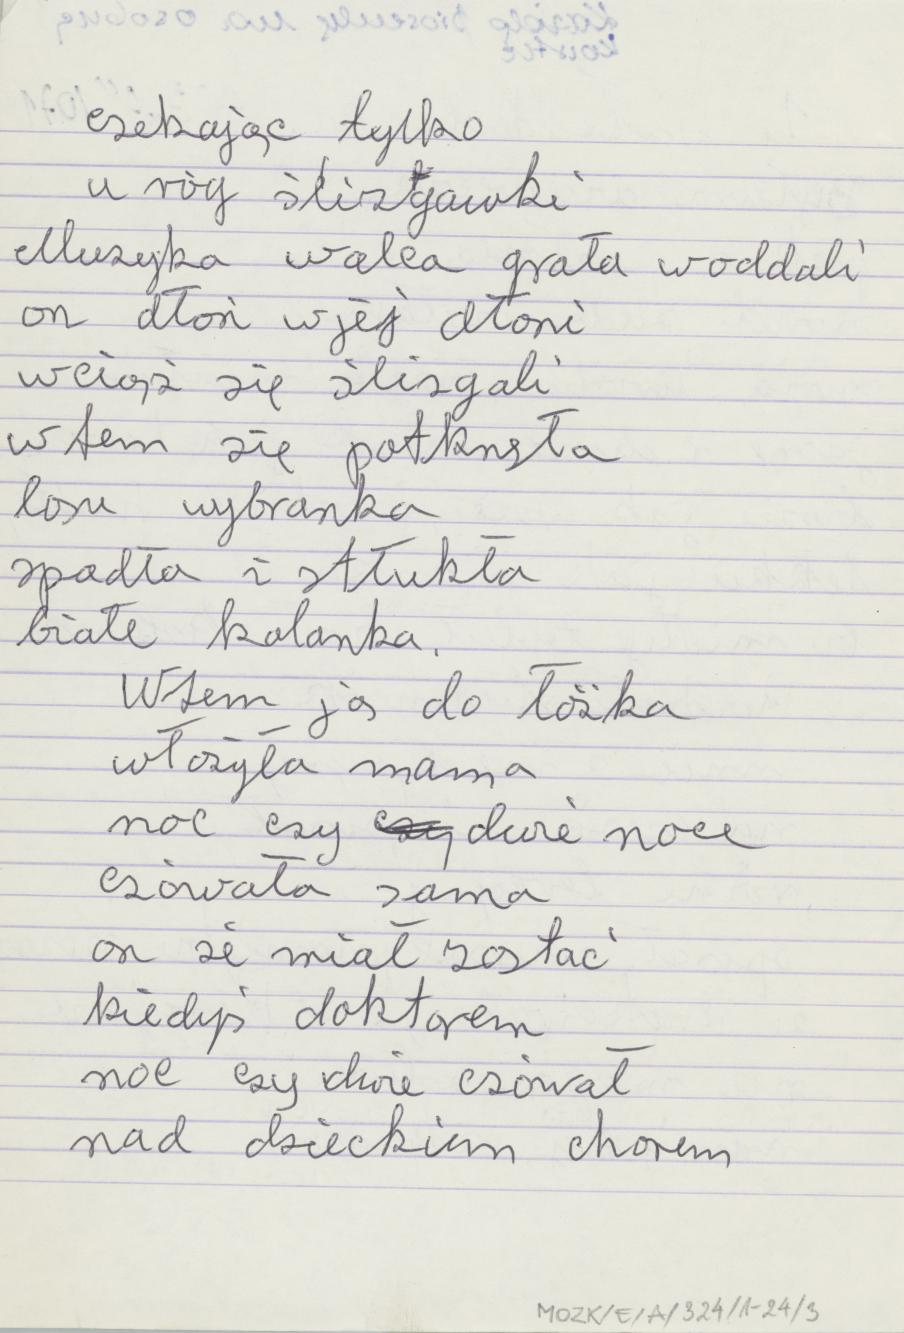 czekając tylko
u róg ślizgawki
Muzyka walca grała woddali
on dłoń w jej dłoni
wciąż się ślizgali
w tem się potknęła
losu wybranka
spadła i stłukła
białe kolanka.
Wtem ją do łóżka
włożyła mama
noc czy czy dwie noce
czówała sama
on że miał zostać
kiedyś doktorem
noc czy dwie czówał
nad dzieckiem chorem
MOZK/E/A/324/1-24/3